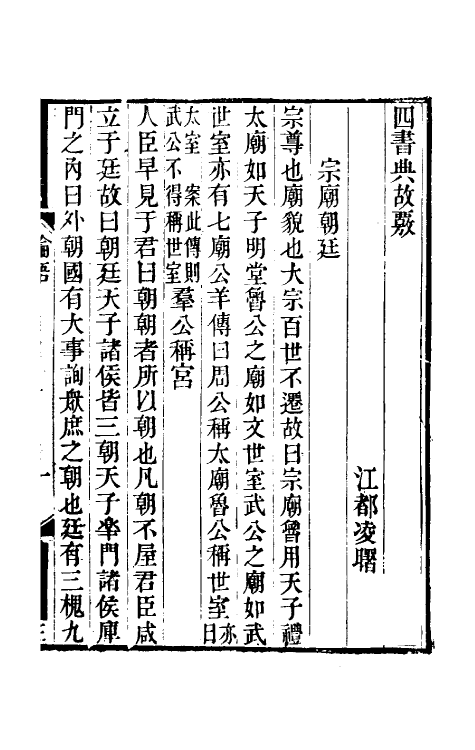 四書典故覈
江都凌曙
宗廟朝廷
宗尊也廟貌也大宗百世不遷故曰宗廟魯用天子禮
太廟如天子明堂魯公之廟如文世室武公之廟如武
世室亦有七廟公羊傳曰周公稱太廟魯公稱世室亦曰
太室案此傳則武公不得稱世室羣公稱宮
人臣早見于君曰朝朝者所以朝也凡朝不屋君臣咸
立于廷故曰朝廷天子諸侯皆三朝天子皋門諸侯庫
門之內曰外朝國有大事詢衆庶之朝也廷有三槐九
論語